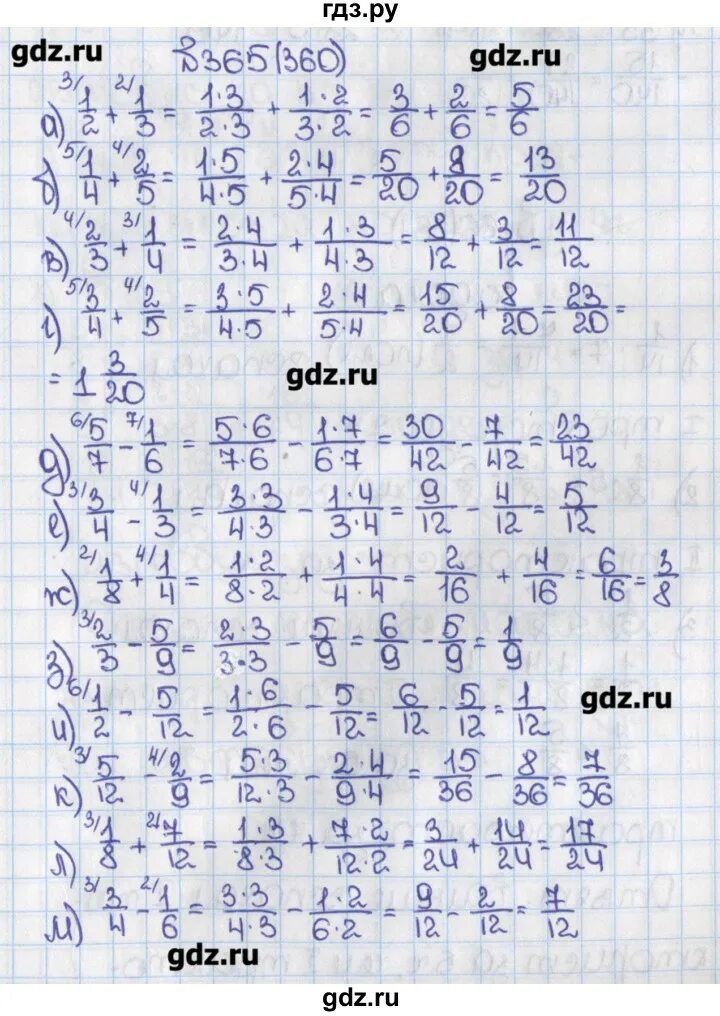 гдз.ру
gdz.ru
№365(360)
gdz.ru
а) 3/ 1/2 + 2/ 1/3 = 1·3/2·3 + 1·2/3·2 = 3/6 + 2/6 = 5/6
б) 5/ 1/4 + 4/ 2/5 = 1·5/4·5 + 2·4/5·4 = 5/20 + 8/20 = 13/20
в) 4/ 2/3 + 3/ 1/4 = 2·4/3·4 + 1·3/4·3 = 8/12 + 3/12 = 11/12
г) 5/ 3/4 + 4/ 2/5 = 3·5/4·5 + 2·4/5·4 = 15/20 + 8/20 = 23/20 =
= 1 3/20
gdz.ru
д) 6/ 5/7 - 7/ 1/6 = 5·6/7·6 - 1·7/6·7 = 30/42 - 7/42 = 23/42
е) 3/ 3/4 - 4/ 1/3 = 3·3/4·3 - 1·4/3·4 = 9/12 - 4/12 = 5/12
ж) 2/ 1/8 + 4/ 1/4 = 1·2/8·2 + 1·4/4·4 = 2/16 + 4/16 = 6/16 = 3/8
з) 3/ 2/3 - 5/9 = 2·3/3·3 - 5/9 = 6/9 - 5/9 = 1/9
gdz.ru
и) 6/ 1/2 - 5/12 = 1·6/2·6 - 5/12 = 6/12 - 5/12 = 1/12
к) 3/ 5/12 - 4/ 2/9 = 5·3/12·3 - 2·4/9·4 = 15/36 - 8/36 = 7/36
л) 3/ 1/8 + 2/ 7/12 = 1·3/8·3 + 7·2/12·2 = 3/24 + 14/24 = 17/24
м) 3/ 3/4 - 2/ 1/6 = 3·3/4·3 - 1·2/6·2 = 9/12 - 2/12 = 7/12
gdz.ru
gdz.ru